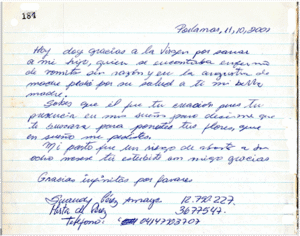 184
Pedamos, 11, 10, 2001
Hoy doy gracias a la Virgen por sanar
a mi hijo, quien se encontraba enfermo
de vomito sin razón y en la angustia de
madre pedí por su salud a ti mi bella
madre.
Sabes que el fue tu creador pues tu
en mi sueño para decirme que
te buscara para ponerte tus flores, que
en sueño me pedistes.
Mi parto fue un riesgo de aborto a los
ocho meses tu estubiste con migo gracias
Gracias infinitas por favores
Pérez Amaya 12.792.227.
de Pérez 3677547.
Teléfono: 04147703707